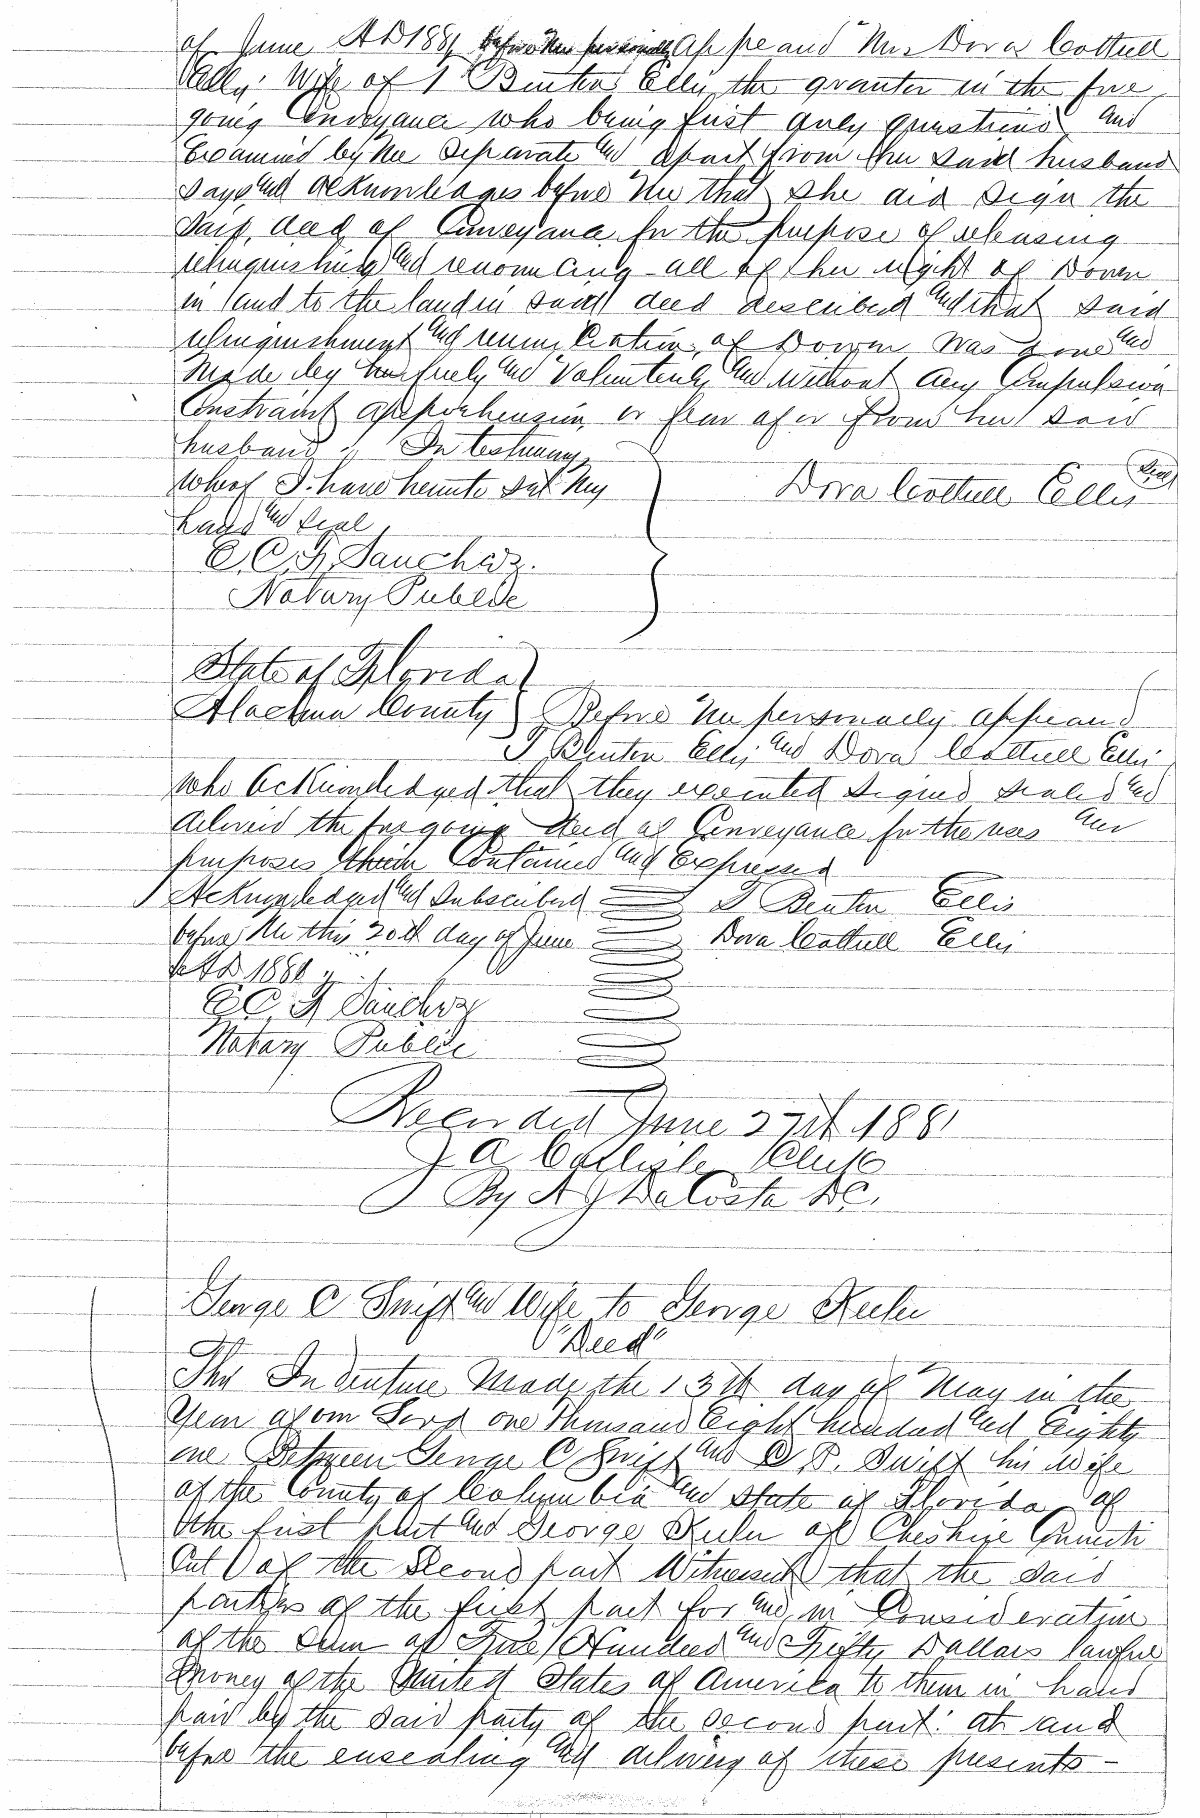 of June AD 1881 before me personally Appeared Mrs Dora Cottrell
Ellis Wife of T Benton Ellis the grantor in the fore
going Conveyance who being first duly questiond and
Examined by me separate and apart from her said husband
says and acknowledges before me that she did sign the
said deed of Conveyance for the purpose of releasing
relinquishing and renouncing all of her right of Dower
in and to the land in said deed described and that said
relinquishment and renunciation of Dower was done and
Made by her freely and Voluntarily and without any Compulsion
Constraint apprehension or fear of or from her said
husband. In testimony
Wherof I have hereunto set my
hand and seal
Dora Cottrell Ellis Seal
E. C. F. Sanchez.
Notary Public
State of Florida
Alachua County Before me personally appeared
T Benton Ellis and Dora Cottrell Ellis
who Acknowledged that they executed signed sealed and
delivered the foregoing deed of Conveyance for the uses and
purposes therein Contained and Expressed
Acknowledged and Subscribed T Benton Ellis
before me this 20th day of June Dora Cottrell Ellis
AD 1881
E C F Sanchez
Notary Public
Recorded June 27th 1881
J A Carlisle Clerk
By A J DaCosta DC.
George C Swift and Wife to George Keeler
"Deed"
This Indenture Made the 13th day of May in the
Year of our Lord one thousand Eight hundred and Eighty
one Between George C Swift and C. P. Swift his wife
of the County of Columbia and State of Florida of
the first part and George Keeler of Cheshire Connecti
cut of the Second part Witnesseth that the said
parties of the first part for and in Consideration
of the sum of Five Hundred and Fifty Dollars lawful
money of the United States of America to them in hand
paid by the said party of the second part at and
before the ensealing and delivery of these presents —